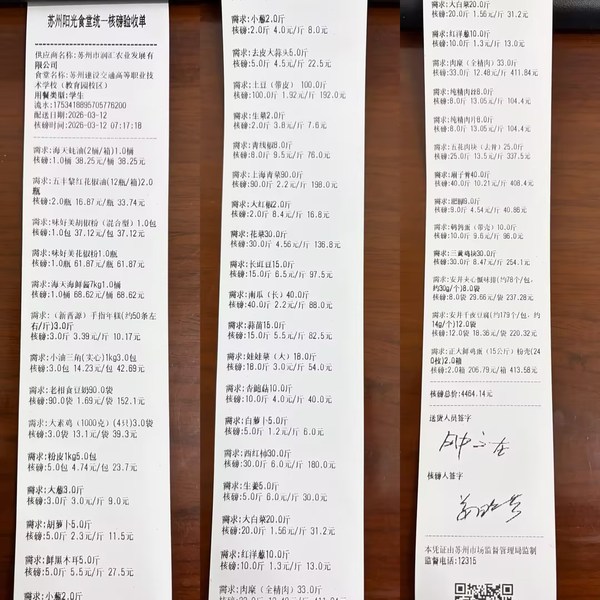 苏州阳光食堂统一核磅验收单
供应商名称:苏州市润汇农业发展有
限公司
食堂名称:苏州建设交通高等职业技
术学校(教育园校区)
用餐类型:学生
流水:1753418895705776200
配送日期:2026-03-12
核磅时间:2026-03-12 07:17:18
需求:海天蚝油(2桶/箱)1.0桶
核磅:1.0桶 38.25元/桶 38.25元
需求:五丰黎红花椒油(12瓶/箱)2.0
瓶
核磅:2.0瓶 16.87元/瓶 33.74元
需求:味好美胡椒粉(混合型)1.0包
核磅:1.0包 37.12元/包 37.12元
需求:味好美花椒粉1.0瓶
核磅:1.0瓶 61.87元/瓶 61.87元
需求:海天海鲜酱7kg1.0桶
核磅:1.0桶 68.62元/桶 68.62元
需求:(新香源)手指年糕(约50条左
右/斤)3.0斤
核磅:3.0斤 3.39元/斤 10.17元
需求:小油三角(实心)1kg3.0包
核磅:3.0包 14.23元/包 42.69元
需求:老相食豆奶90.0袋
核磅:90.0袋 1.69元/袋 152.1元
需求:大素鸡(1000克)(4只)3.0袋
核磅:3.0袋 13.1元/袋 39.3元
需求:粉皮1kg5.0包
核磅:5.0包 4.74元/包 23.7元
需求:大葱3.0斤
核磅:3.0斤 3.0元/斤 9.0元
需求:胡萝卜5.0斤
核磅:5.0斤 2.3元/斤 11.5元
需求:鲜黑木耳5.0斤
核磅:5.0斤 5.5元/斤 27.5元
需求:小葱2.0斤
需求:小葱2.0斤
核磅:2.0斤 4.0元/斤 8.0元
需求:去皮大蒜头5.0斤
核磅:5.0斤 4.5元/斤 22.5元
需求:土豆(带皮)100.0斤
核磅:100.0斤 1.92元/斤 192.0元
需求:生菜2.0斤
核磅:2.0斤 3.8元/斤 7.6元
需求:青线椒8.0斤
核磅:8.0斤 9.5元/斤 76.0元
需求:上海青菜90.0斤
核磅:90.0斤 2.2元/斤 198.0元
需求:大红椒2.0斤
核磅:2.0斤 8.4元/斤 16.8元
需求:花菜30.0斤
核磅:30.0斤 4.56元/斤 136.8元
需求:长豇豆15.0斤
核磅:15.0斤 6.5元/斤 97.5元
需求:南瓜(长)40.0斤
核磅:40.0斤 2.2元/斤 88.0元
需求:蒜苗15.0斤
核磅:15.0斤 5.5元/斤 82.5元
需求:娃娃菜(大)18.0斤
核磅:18.0斤 3.0元/斤 54.0元
需求:杏鲍菇10.0斤
核磅:10.0斤 4.0元/斤 40.0元
需求:白萝卜5.0斤
核磅:5.0斤 1.2元/斤 6.0元
需求:西红柿30.0斤
核磅:30.0斤 6.0元/斤 180.0元
需求:生姜5.0斤
核磅:5.0斤 6.0元/斤 30.0元
需求:大白菜20.0斤
核磅:20.0斤 1.56元/斤 31.2元
需求:红洋葱10.0斤
核磅:10.0斤 1.3元/斤 13.0元
需求:肉糜(全精肉)33.0斤
需求:大白菜20.0斤
核磅:20.0斤 1.56元/斤 31.2元
需求:红洋葱10.0斤
核磅:10.0斤 1.3元/斤 13.0元
需求:肉糜(全精肉)33.0斤
核磅:33.0斤 12.48元/斤 411.84元
需求:纯精肉丝8.0斤
核磅:8.0斤 13.05元/斤 104.4元
需求:纯精肉片8.0斤
核磅:8.0斤 13.05元/斤 104.4元
需求:五花肉块(去骨)25.0斤
核磅:25.0斤 13.5元/斤 337.5元
需求:扇子骨40.0斤
核磅:40.0斤 10.21元/斤 408.4元
需求:肥膘9.0斤
核磅:9.0斤 4.54元/斤 40.86元
需求:鹌鹑蛋(带壳)10.0斤
核磅:10.0斤 9.6元/斤 96.0元
需求:三黄鸡块30.0斤
核磅:30.0斤 8.47元/斤 254.1元
需求:安井夹心鱼味排(约78个/包,
约30g/个)8.0袋
核磅:8.0袋 29.66元/袋 237.28元
需求:安井千夜豆腐(约179个/包,约
14g/个)12.0袋
核磅:12.0袋 18.36元/袋 220.32元
需求:正大鲜鸡蛋(15公斤)粉壳(24
0枚)2.0箱
核磅:2.0箱 206.79元/箱 413.58元
核磅总价:4464.14元
送货人员签字
核磅人签字
本凭证由苏州市场监督管理局监制
监督电话:12315